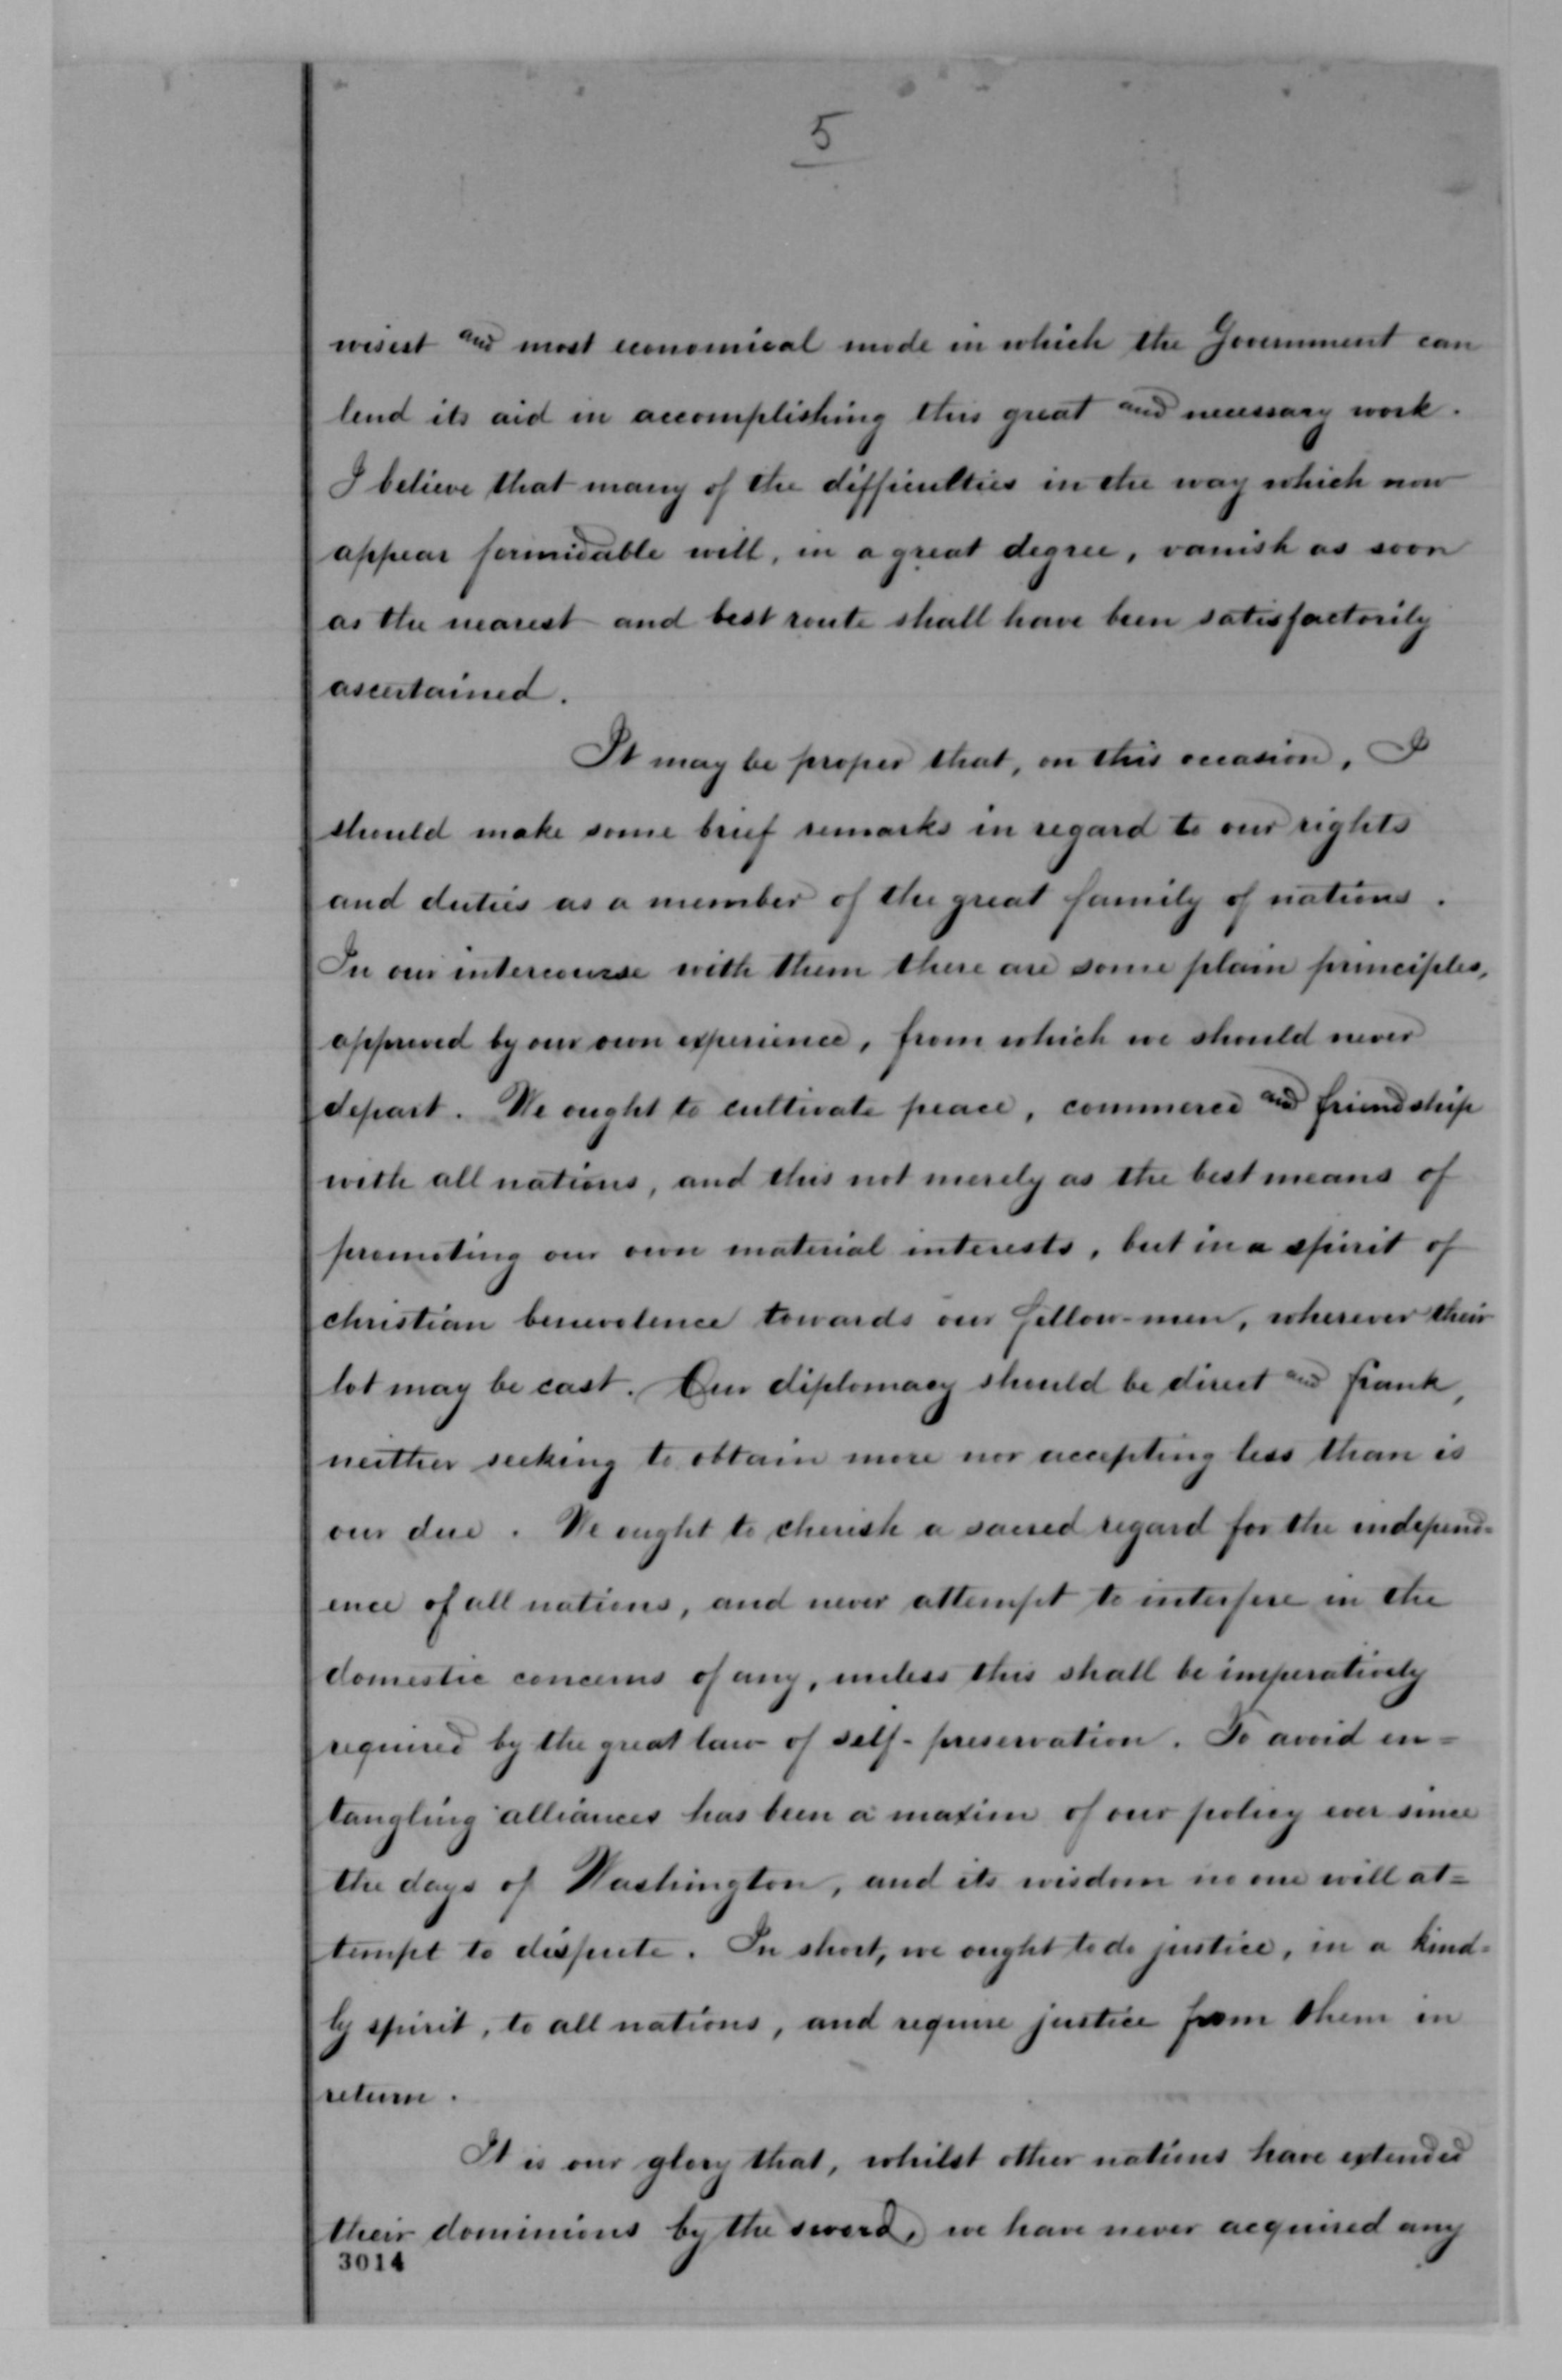 5
wisest and most economical mode in which the Government can
lend its aid in accomplishing this great and necessary work.
I believe that many of the difficulties in the way which now
appear formidable will, in a great degree, vanish as soon
as the nearest and best route shall have been satisfactorily
ascertained.
It may be proper that, on this occasion, I
should make some brief remarks in regard to our rights
and duties as a member of the great family of nations.
In our intercourse with them there are some plain principles,
approved by our own experience, from which we should never
depart. We ought to cultivate peace, commerce and friendship
with all nations, and this not merely as the best means of
promoting our own material interests, but in a spirit of
christian benevolence towards our fellow-men, wherever their
lot may be cast. Our diplomacy should be direct and frank,
neither seeking to obtain more nor accepting less than is
our due. We ought to cherish a sacred regard for the independ=
ence of all nations, and never attempt to interfere in the
domestic concerns of any, unless this shall be imperatively
required by the great law of self-preservation. To avoid en=
tangling alliances has been a maxim of our policy ever since
the days of Washington, and its wisdom no one will at=
tempt to dispute. In short, we ought to do justice, in a kind=
ly spirit, to all nations, and require justice from them in
return.
It is our glory that, whilst other nations have extended
their dominions by the sword, we have never acquired any
3014